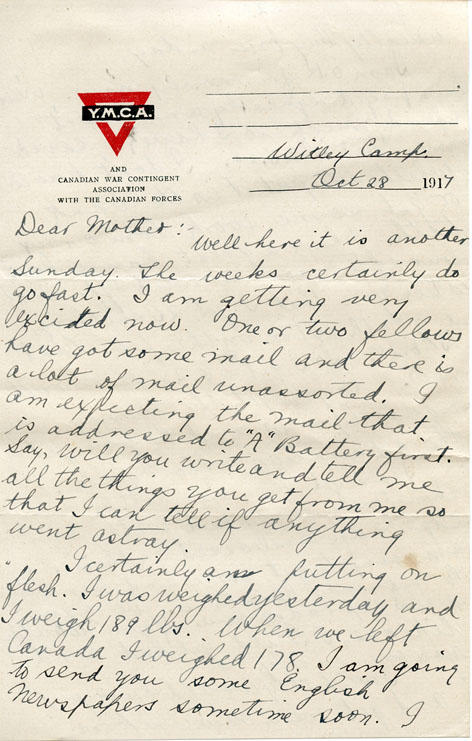 Y.M.C.A.
AND
CANADIAN WAR CONTINGENT
ASSOCIATION
WITH THE CANADIAN FORCES
Witley Camp.
Oct 28 1917
Dear Mother:-
Well here it is another
Sunday. The weeks certainly do
go fast. I am getting very
excited now. One or two fellows
have got some mail and there is
a lot of mail unassorted. I
am expecting the mail that
is addressed to "A" Battery first.
Say, will you write and tell me
all the things you get from me so
that I can tell if anything
went astray.
I certainly am putting on
"flesh. I was weighed yesterday and
I weigh 189 lbs. When we left
Canada I weighed 178. I am going
to send you some English
Newspapers sometime soon. I